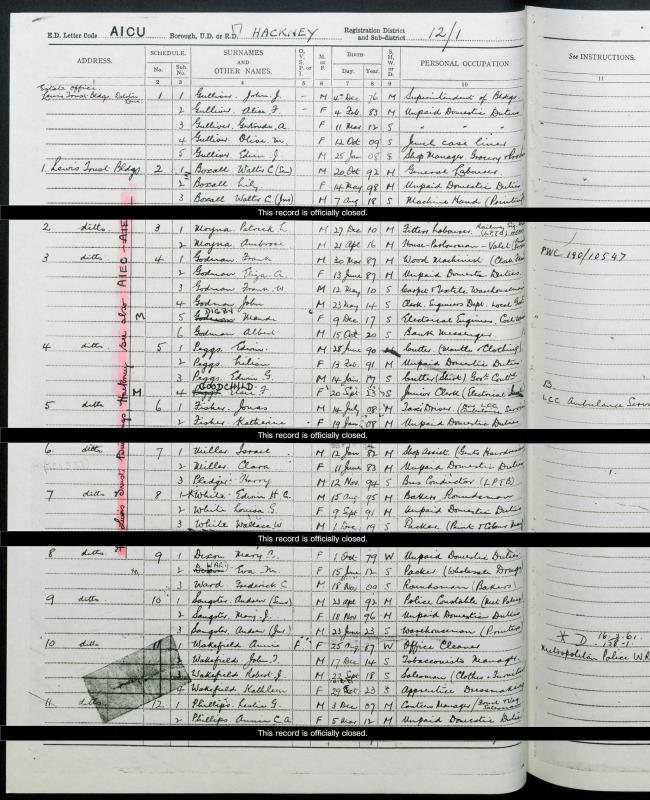 E.D. Letter Code AICU Borough, U.D. or R.D. HACKNEY Registration District and Sub-district 12/1
ADDRESS. SCHEDULE. SURNAMES AND OTHER NAMES. O, V, S, P or I M. or F. BIRTH— S, M, W, or D. PERSONAL OCCUPATION See INSTRUCTIONS.
No. Sub. No. Day. Year.
1 2 3 4 5 6 7 8 9 10 11
Estate Office
Lewis Trust Bldgs 1 1 Gulliver John J. – M 4 Dec 76 M Superintendent of Bldgs
2 Gulliver Alice F. – F 4 Feb 83 M Unpaid Domestic Duties
3 Gulliver A. F 11 Mar 12 S " " "
4 Gulliver Olive M. F 12 Oct 09 S Jewel case liner
5 Gulliver Edwin J. M 25 Jan 08 S Shop Manager Grocery
1 Lewis Trust Bldgs 2 1 Boxall Walter C (Snr) M 20 Oct 92 M General Labourer
2 Boxall Lily F 14 May 98 M Unpaid Domestic Duties
3 Boxall Walter C (Jnr) M 7 Aug 18 S Machine Hand (Printing)
This record is officially closed.
2 ditto 3 1 Moyna Patrick M 27 Dec 10 M Fitters Labourer (LPTB)
2 Moyna Ambrose M 21 Apl 16 M House-Parlourman – Valet
3 ditto 4 1 Godman Frank M 30 Mar 87 M Wood Machinist PWC 190/10547
2 Godman Eliza A. F 13 June 87 M Unpaid Domestic Duties
3 Godman Frank W M 12 May 10 S Carpet & Textile Warehouseman
4 Godman John M 23 May 14 S Clerk Engineers Dept. Local
M 5 DIGBY Maude F 9 Dec 17 S Electrical Engineer
6 Godman Albert M 15 Oct 20 S Bank Messenger
4 ditto 5 1 Peggs Edwin M 28 June 90 Cutter (Mantle & Clothing)
2 Peggs Lilian F 13 Feb 91 M Unpaid Domestic Duties
3 Peggs Edwin G. M 14 Jan 17 S Cutter (Shirt) Govt Contr
M 4 GOODCHILD F. F 20 Sept 23 S Junior Clerk (Electrical B
5 ditto 6 1 Fisher Jonas M 14 July 08 M Taxi Driver LCC Ambulance Service
2 Fisher Katherine F 19 Jan 08 M Unpaid Domestic Duties
This record is officially closed.
6 ditto 7 1 Miller Israel M 12 Jan 82 M Shop Assist. (Gents Hairdresser
2 Miller Clara F 11 June 83 M Unpaid Domestic Duties
3 Pledger Harry M 12 Nov 94 S Bus Conductor (LPTB)
7 ditto 8 1 White Edwin H. C. M 15 Aug 95 M Bakers Roundsman
2 White Louisa G. F 9 Sept 91 M Unpaid Domestic Duties
3 White Wallace W M 1 19 S Packer (Paint & Colour
This record is officially closed.
8 ditto 9 1 Dixon Mary F 1 Oct 79 W Unpaid Domestic Duties
2 WARD Eva M. F 15 June 12 S Packer (Wholesale Drugs)
3 Ward Frederick C M 18 Nov 09 S Roundsman (Bakers)
9 ditto 10 1 Sangster Andrew (Snr) M 23 Apl 92 M Police Constable (Met Police)
2 Sangster Mary J. F 18 Nov 96 M Unpaid Domestic Duties
3 Sangster Andrew (Jnr) M 23 June 23 S Warehouseman (Printers)
10 ditto 11 1 Wakefield Annie F 25 Aug 87 W Office Cleaner
2 Wakefield John F. M 17 Dec 14 S Tobacconists Manager Metropolitan Police W.R.
3 Wakefield Robert J. M 22 Sept 18 S Salesman (Clothes & Furniture
4 Wakefield Kathleen F 29 Oct 23 S Apprentice Dressmaker
11 ditto 12 1 Phillips Leslie G. M 3 Dec 07 M Canteen Manager
2 Phillips C A F 5 Mar 12 M Unpaid Domestic Duties
This record is officially closed.